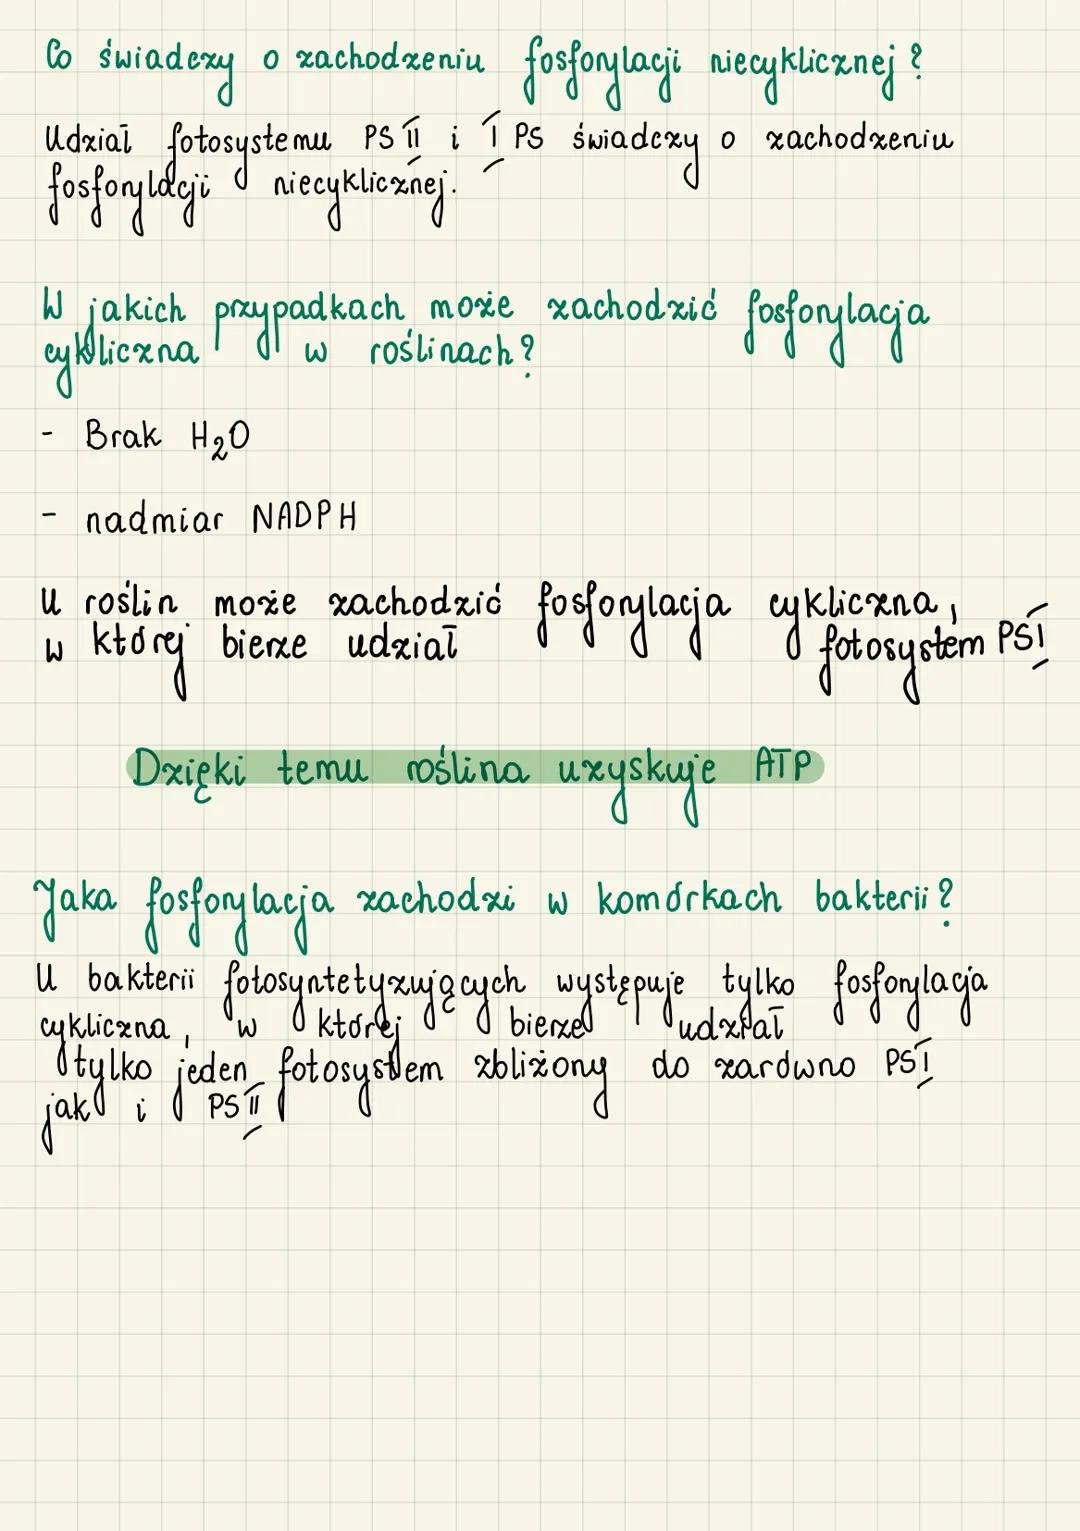 Co świadczy o zachodzeniu fosforylacji niecyklicznej?
Udział fotosystemu PS II i I PS świadczy o zachodzeniu
fosforylacji niecyklicznej.
W jakich przypadkach może zachodzić fosforylacja
cykliczna w roślinach?
- Brak H₂O
- nadmiar NADPH
U roślin może zachodzić fosforylacja cykliczna,
w której bierze udział fotosystem PSI
Dzięki temu roślina uzyskuje ATP
Jaka fosforylacja zachodzi w komórkach bakterii?
U bakterii fotosyntetyzujących występuje tylko fosforylacja
cykliczna, w której bierze udział
tylko jeden fotosystem zbliżony do zarówno PSI
jak i PSII